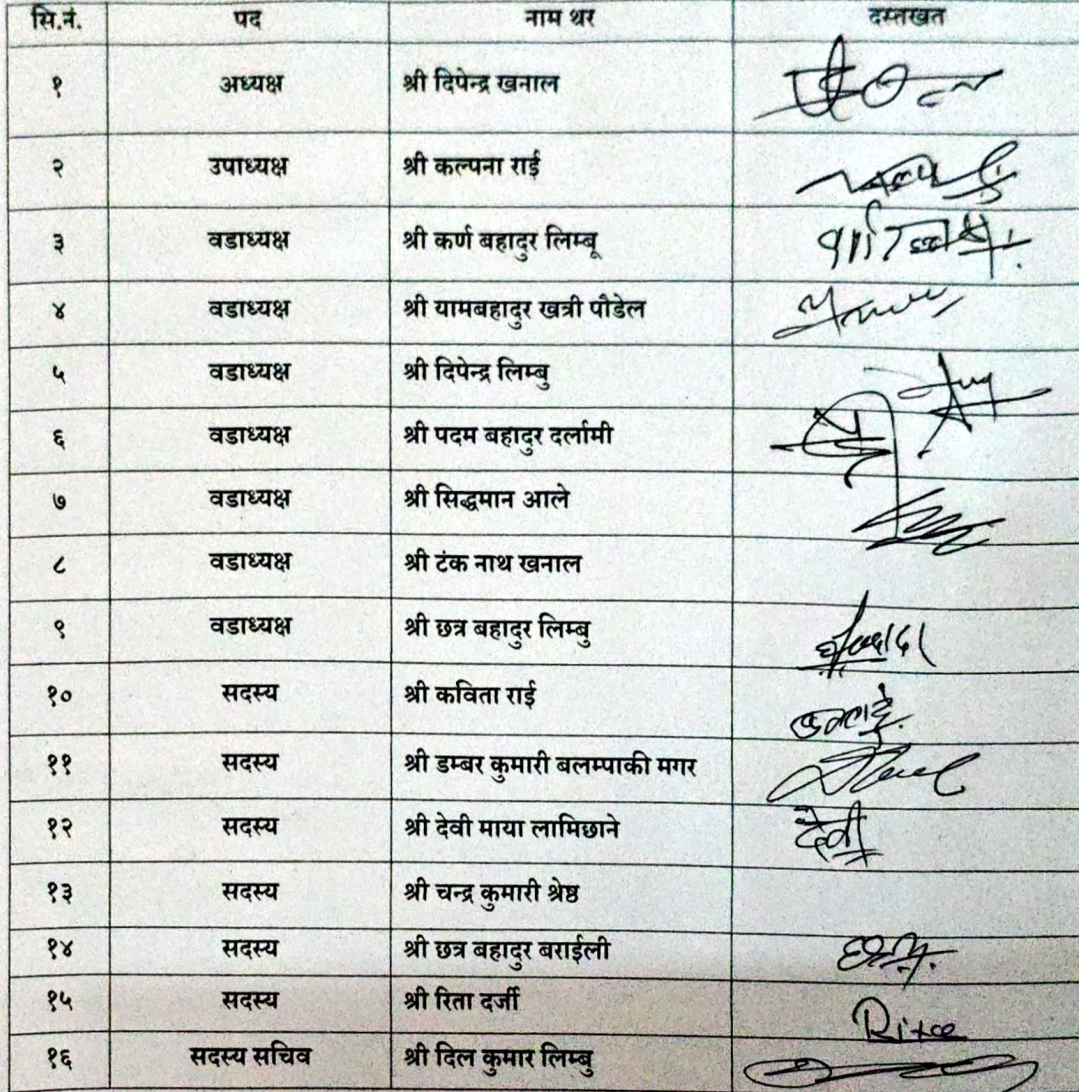 सि.नं. पद नाम थर दस्तखत
१ अध्यक्ष श्री दिपेन्द्र खनाल
२ उपाध्यक्ष श्री कल्पना राई
३ वडाध्यक्ष श्री कर्ण बहादुर लिम्बू
४ वडाध्यक्ष श्री यामबहादुर खत्री पौडेल
५ वडाध्यक्ष श्री दिपेन्द्र लिम्बु
६ वडाध्यक्ष श्री पदम बहादुर दर्लामी
७ वडाध्यक्ष श्री सिद्धमान आले
८ वडाध्यक्ष श्री टंक नाथ खनाल
९ वडाध्यक्ष श्री छत्र बहादुर लिम्बु
१० सदस्य श्री कविता राई
११ सदस्य श्री डम्बर कुमारी बलम्पाकी मगर
१२ सदस्य श्री देवी माया लामिछाने देवी
१३ सदस्य श्री चन्द्र कुमारी श्रेष्ठ
१४ सदस्य श्री छत्र बहादुर बराईली
१५ सदस्य श्री रिता दर्जी Rita
१६ सदस्य सचिव श्री दिल कुमार लिम्बु